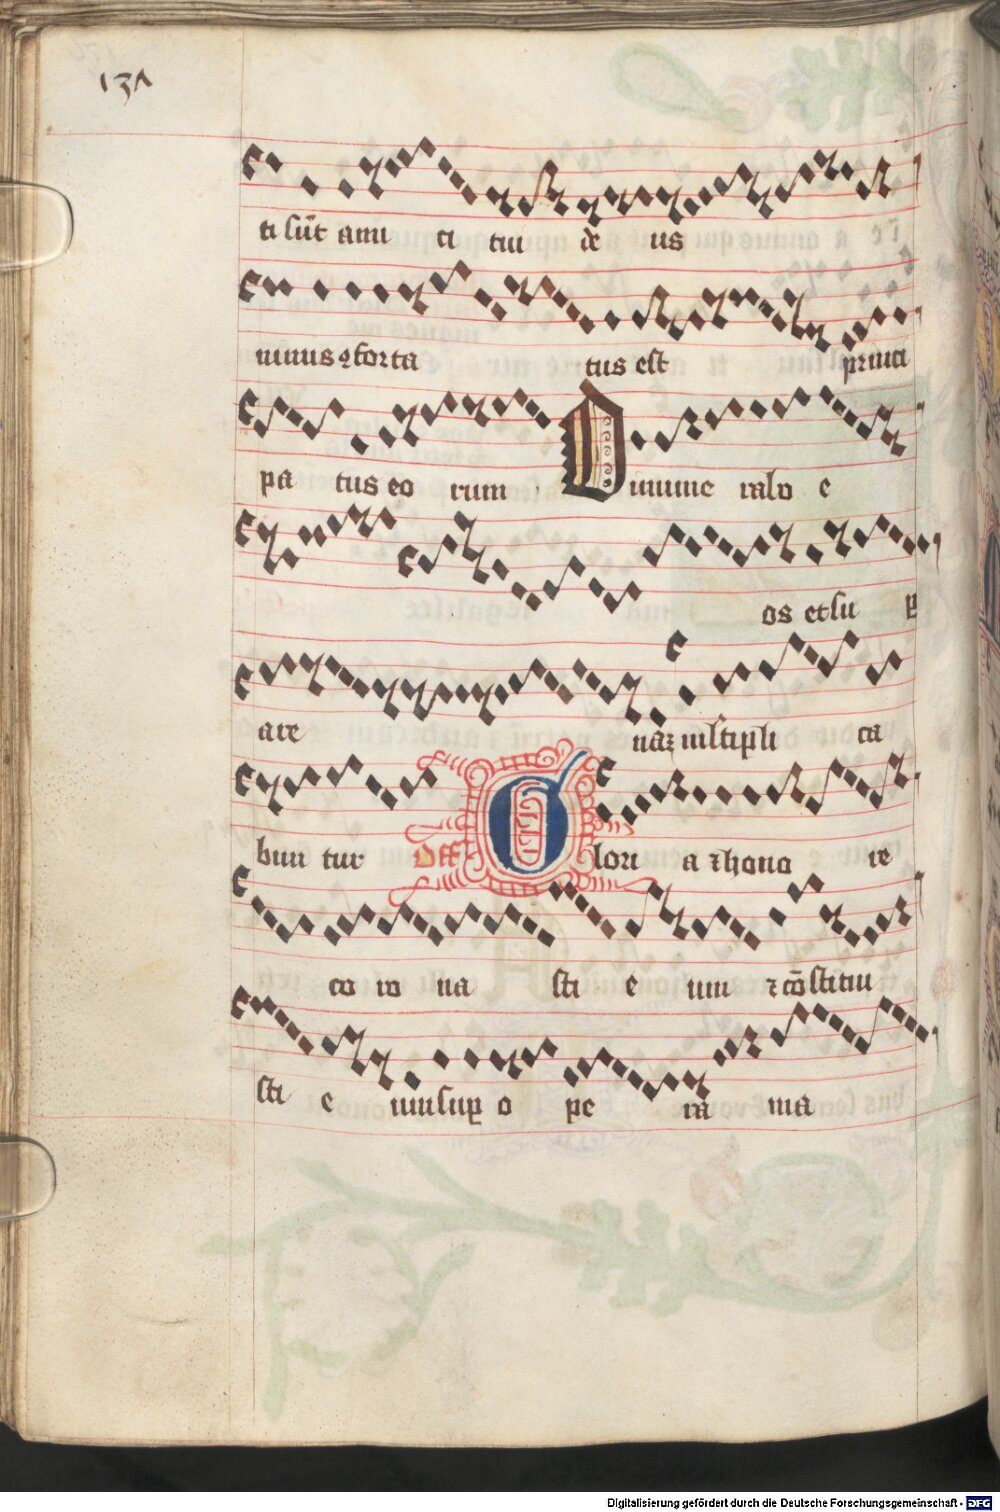 137
ti sūt ami ci tui de us
nimis ꝯforta tus est princi
pa tus eo rum Dinume rabo e
os et su ꝑ
are nāꝫ mltipli ca
bun tur Off Glori a ⁊ hono re
co ro na sti e um ⁊ cōstitui
sti e umsuꝑ o pe ra ma
Digitalisierung gefördert durch die Deutsche Forschungsgemeinschaft - DFG